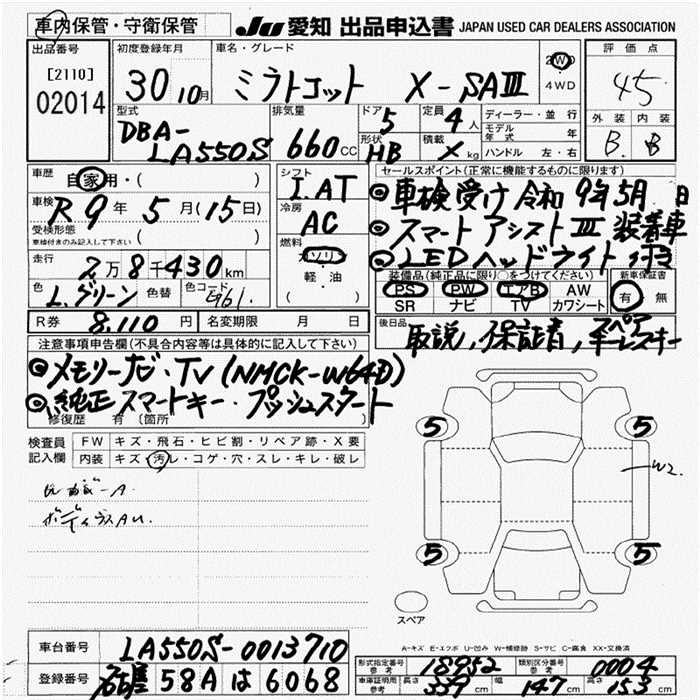 車内保管・守衛保管
JU 愛知 出品申込書 JAPAN USED CAR DEALERS ASSOCIATION
出品番号 初度登録年月 車名・グレード 評価点
[2110]
02014
30 10月 ミラトコット X-SAIII 2WD 4WD 4.5
型式 排気量 ドア 定員 ディーラー・並行 外装 内装
DBA-
LA550S 660CC 5 4人 モデル年式 年 B. B
形状 積載 ハンドル 左・右
HB × kg
車歴 自家用・( ) シフト セールスポイント(正常に機能するものに限ります)
I.AT ◎車検受け令和9年5月 日
車検 R9年5月(15日) 冷房
受検形態 ( ) AC ◎スマートアシストIII装着車
車検付きのみ記入して下さい 燃料
走行 ガソリン ◎LEDヘッドライト
2万8千430km 軽・油 装備品(純正品に限り○をつけてください) 新車保証書
色 色替 色コード ( ) PS PW エアB AW 有 無
L.グリーン SR ナビ TV カワシート
R券 8.110円 名変期限 月 日 後日品 取説,保証書,スペアキーレスキー
注意事項申告欄(不具合内容等は具体的に記入して下さい)
◎メモリーナビ・TV(NMCK-W64D)
◎純正スマートキー・プッシュスタート
修復歴 有 (箇所
検査員 FW キズ・飛石・ヒビ割・リペア跡・X要
記入欄 内装 キズ・汚レ・コゲ・穴・スレ・キレ・破レ
5 5
W2.
5 5
スペア
A-キズ E-エクボ U-凹み W-補修跡 S-サビ C-腐食 XX-交換済
車台番号 LA550S-0013710
登録番号 名古屋 58A は 6068
形式指定番号 参考 18952 類別区分番号 参考 0004
車庫証明用 参考 長さ 339cm 幅 147cm 高さ 153cm